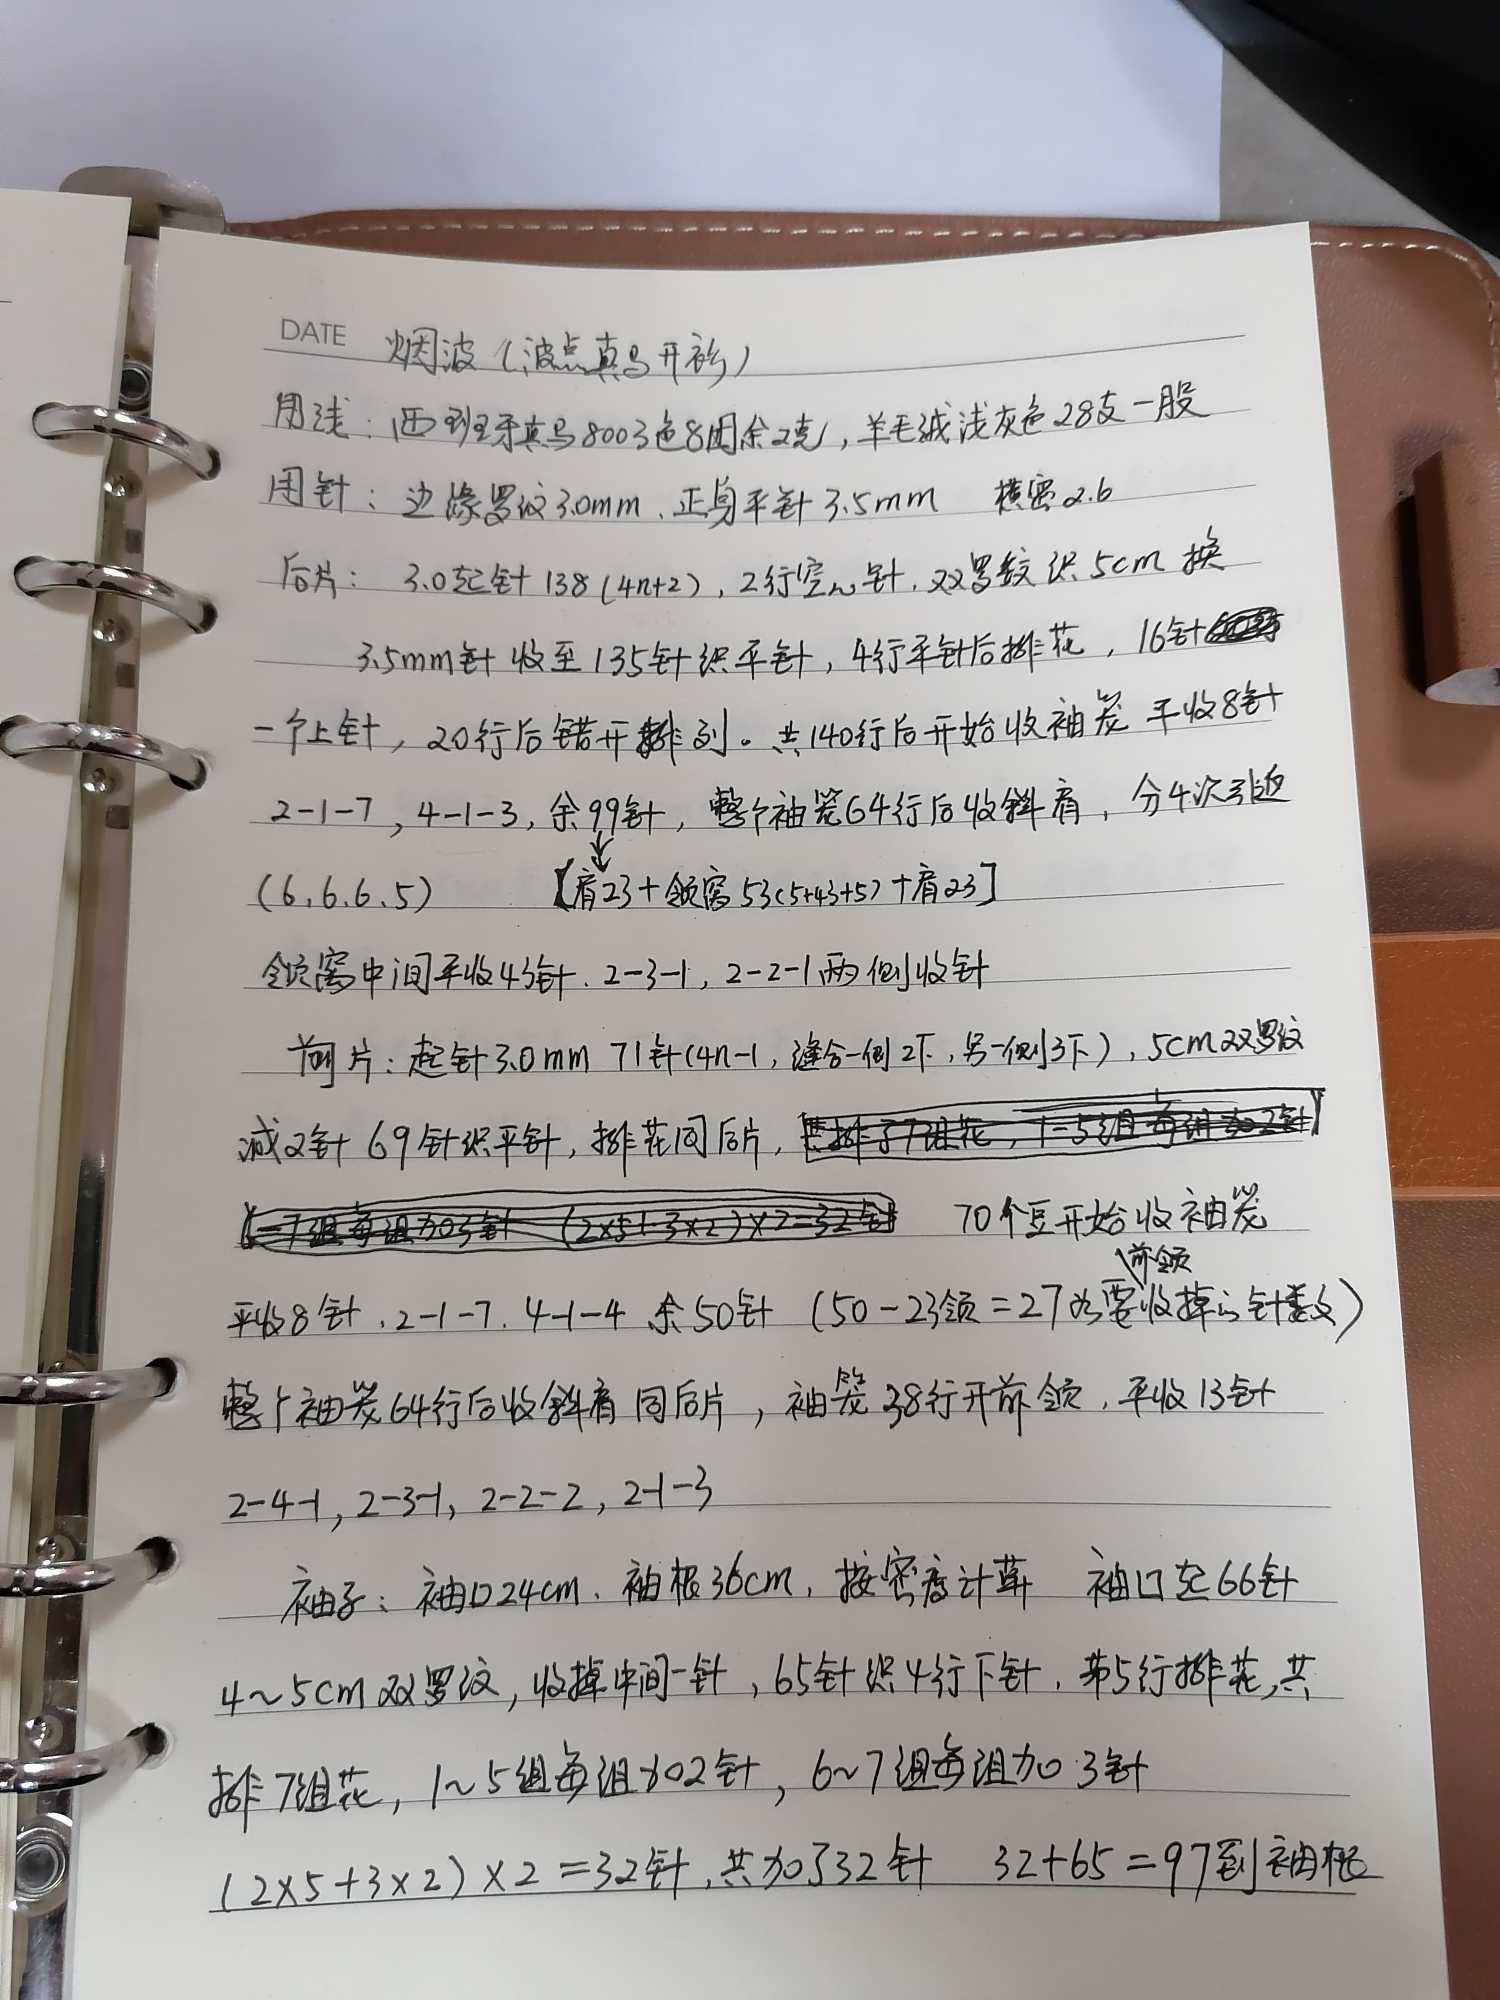 DATE 烟波（波点真马开衫）
用线：西班牙真马8003色8团余2克，羊毛绒浅灰色28支一股
用针：边缘罗纹3.0mm、正身平针3.5mm 横密2.6
后片：3.0起针138(4n+2)，2行空心针，双罗纹织5cm换
3.5mm针收至135针织平针，4行平针后排花，16针
一个上针，20行后错开排列。共140行后开始收袖笼 平收8针
2-1-7，4-1-3，余99针，整个袖笼64行后收斜肩，分4次引返
(6、6、6、5) 【肩23+领窝53(5+43+5)+肩23】
领窝中间平收43针、2-3-1，2-2-1两侧收针
前片：起针3.0mm 71针(4n-1，缝合一侧2下，另一侧3下)，5cm双罗纹
减2针69针织平针，排花同后片，共排了7组花，1-5组每组加2针
6-7组每组加3针 (2×5+3×2)×2=32针 70个豆开始收袖笼
平收8针、2-1-7、4-1-4 余50针 (50-23领=27为要前领收掉的针数)
整个袖笼64行后收斜肩同后片，袖笼38行开前领，平收13针
2-4-1，2-3-1，2-2-2，2-1-3
袖子：袖口24cm、袖根36cm，按密度计算 袖口起66针
4~5cm双罗纹，收掉中间一针，65针织4行下针，第5行排花，共
排7组花，1~5组每组加2针，6~7组每组加3针
(2×5+3×2)×2=32针，共加了32针 32+65=97到袖根